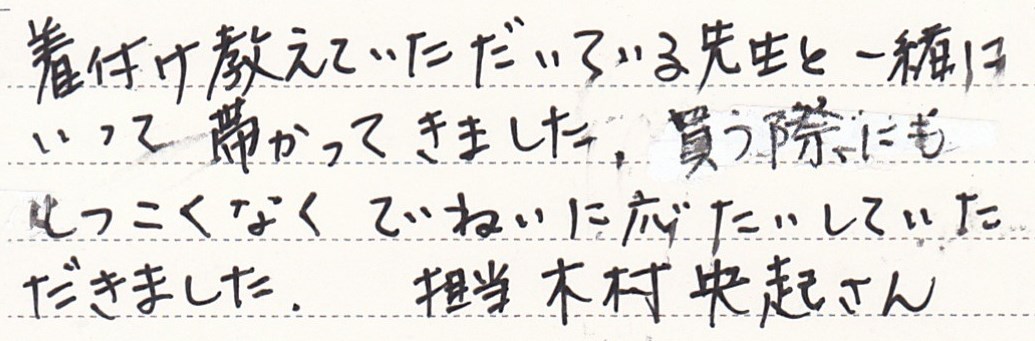 着付け教えていただいている先生と一緒に
いって帯かってきました。買う際にも
しつこくなくていねいに応たいしていた
だきました。 担当 木村 央起さん